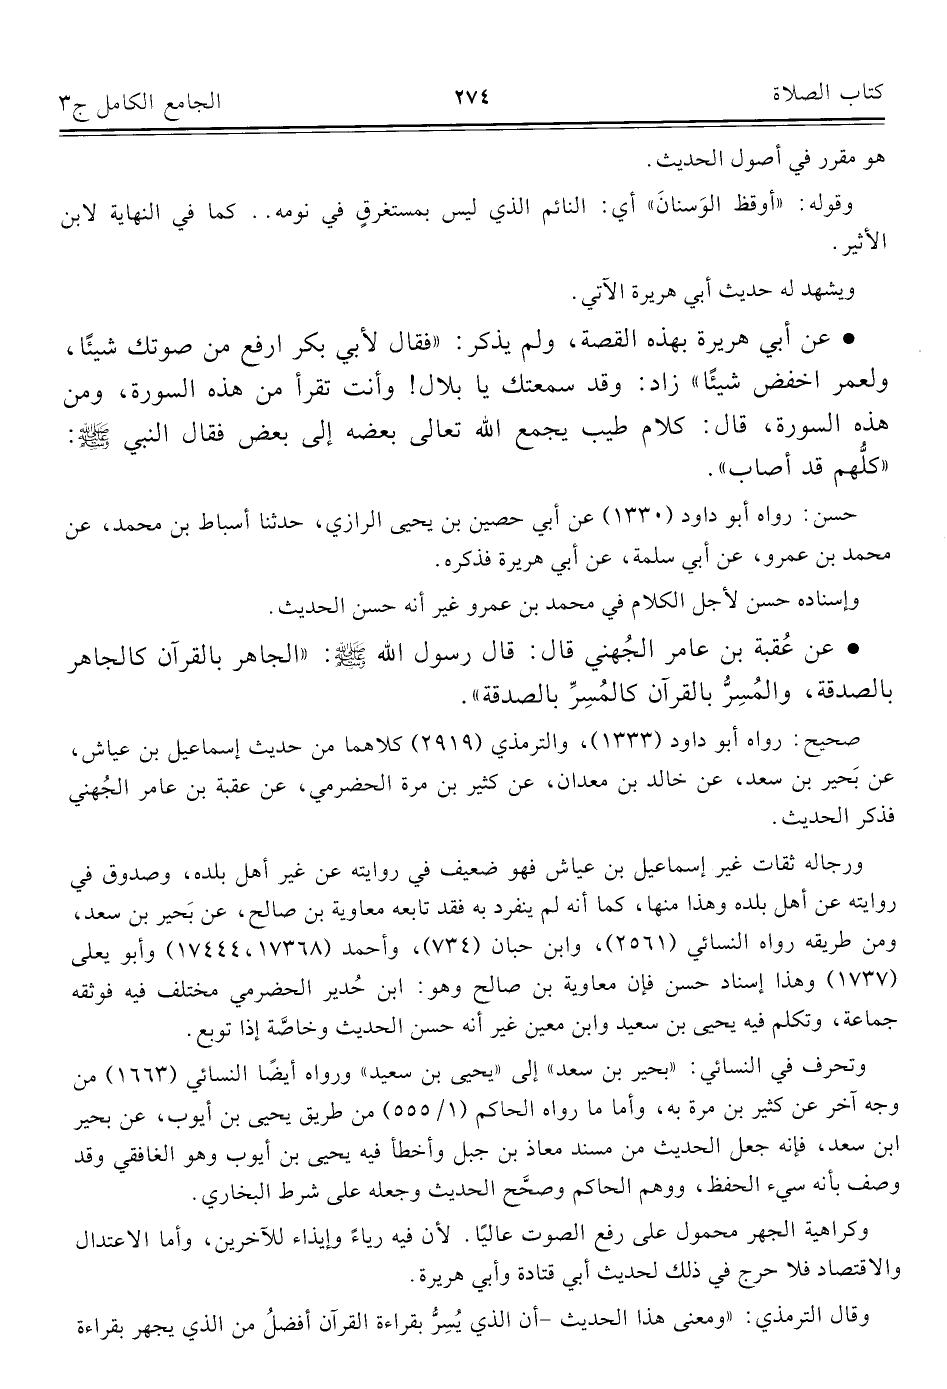 كتاب الصلاة ٢٧٤ الجامع الكامل ج٣
هو مقرر في أصول الحديث.
وقوله: «أوقظ الوَسنانَ» أي: النائم الذي ليس بمستغرقٍ في نومه.. كما في النهاية لابن
الأثير.
ويشهد له حديث أبي هريرة الآتي.
• عن أبي هريرة بهذه القصة، ولم يذكر: «فقال لأبي بكر ارفع من صوتك شيئًا،
ولعمر اخفض شيئًا» زاد: وقد سمعتك يا بلال! وأنت تقرأ من هذه السورة، ومن
هذه السورة، قال: كلام طيب يجمع الله تعالى بعضه إلى بعض فقال النبي ﷺ:
«كلُّهم قد أصاب».
حسن: رواه أبو داود (١٣٣٠) عن أبي حصين بن يحيى الرازي، حدثنا أسباط بن محمد، عن
محمد بن عمرو، عن أبي سلمة، عن أبي هريرة فذكره.
وإسناده حسن لأجل الكلام في محمد بن عمرو غير أنه حسن الحديث.
• عن عُقبة بن عامر الجُهني قال: قال رسول الله ﷺ: «الجاهر بالقرآن كالجاهر
بالصدقة، والمُسِرُّ بالقرآن كالمُسِرِّ بالصدقة».
صحيح: رواه أبو داود (١٣٣٣)، والترمذي (٢٩١٩) كلاهما من حديث إسماعيل بن عياش،
عن بَحير بن سعد، عن خالد بن معدان، عن كثير بن مرة الحضرمي، عن عقبة بن عامر الجُهني
فذكر الحديث.
ورجاله ثقات غير إسماعيل بن عياش فهو ضعيف في روايته عن غير أهل بلده، وصدوق في
روايته عن أهل بلده وهذا منها، كما أنه لم ينفرد به فقد تابعه معاوية بن صالح، عن بَحير بن سعد،
ومن طريقه رواه النسائي (٢٥٦١)، وابن حبان (٧٣٤)، وأحمد (١٧٣٦٨،١٧٤٤٤) وأبو يعلى
(١٧٣٧) وهذا إسناد حسن فإن معاوية بن صالح وهو: ابن حُدير الحضرمي مختلف فيه فوثقه
جماعة، وتكلم فيه يحيى بن سعيد وابن معين غير أنه حسن الحديث وخاصَّة إذا توبع.
وتحرف في النسائي: «بحير بن سعد» إلى «يحيى بن سعيد» ورواه أيضًا النسائي (١٦٦٣) من
وجه آخر عن كثير بن مرة به، وأما ما رواه الحاكم (١/ ٥٥٥) من طريق يحيى بن أيوب، عن بحير
ابن سعد، فإنه جعل الحديث من مسند معاذ بن جبل وأخطأ فيه يحيى بن أيوب وهو الغافقي وقد
وصف بأنه سيء الحفظ، ووهم الحاكم وصحَّح الحديث وجعله على شرط البخاري.
وكراهية الجهر محمول على رفع الصوت عاليًا. لأن فيه رياءً وإيذاء للآخرين، وأما الاعتدال
والاقتصاد فلا حرج في ذلك لحديث أبي قتادة وأبي هريرة.
وقال الترمذي: «ومعنى هذا الحديث -أن الذي يُسِرُّ بقراءة القرآن أفضلُ من الذي يجهر بقراءة